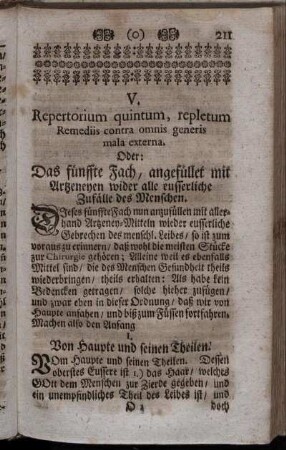 (o) 211
V.
Repertorium quintum, repletum
Remediis contra omnis generis
mala externa.
Oder:
Das fünffte Fach, angefüllet mit
Artzeneyen wider alle eusserliche
Zufälle des Menschen.
Dieses fünffte Fach nun anzufüllen mit aller-
hand Artzeney-Mitteln wieder eusserliche
Gebrechen des menschl. Leibes / so ist zum
voraus zu erinnern / daß wohl die meisten Stücke
zur Chirurgie gehören; Alleine weil es ebenfalls
Mittel sind / die des Menschen Gesundheit theils
wiederbringen / theils erhalten: Als habe kein
Bedencken getragen / solche hieher zufügen /
und zwar eben in dieser Ordnung / daß wir von
Haupte anfahen / und biß zum Füssen fortfahren.
Machen also den Anfang
I.
Von Haupte und seinen Theilen.
VOm Haupte und seinen Theilen. Dessen
oberstes Eussere ist 1.) das Haar / welches
GOtt dem Menschen zur Zierde gegeben / und
ein unempfindliches Theil des Leibes ist / und
doch